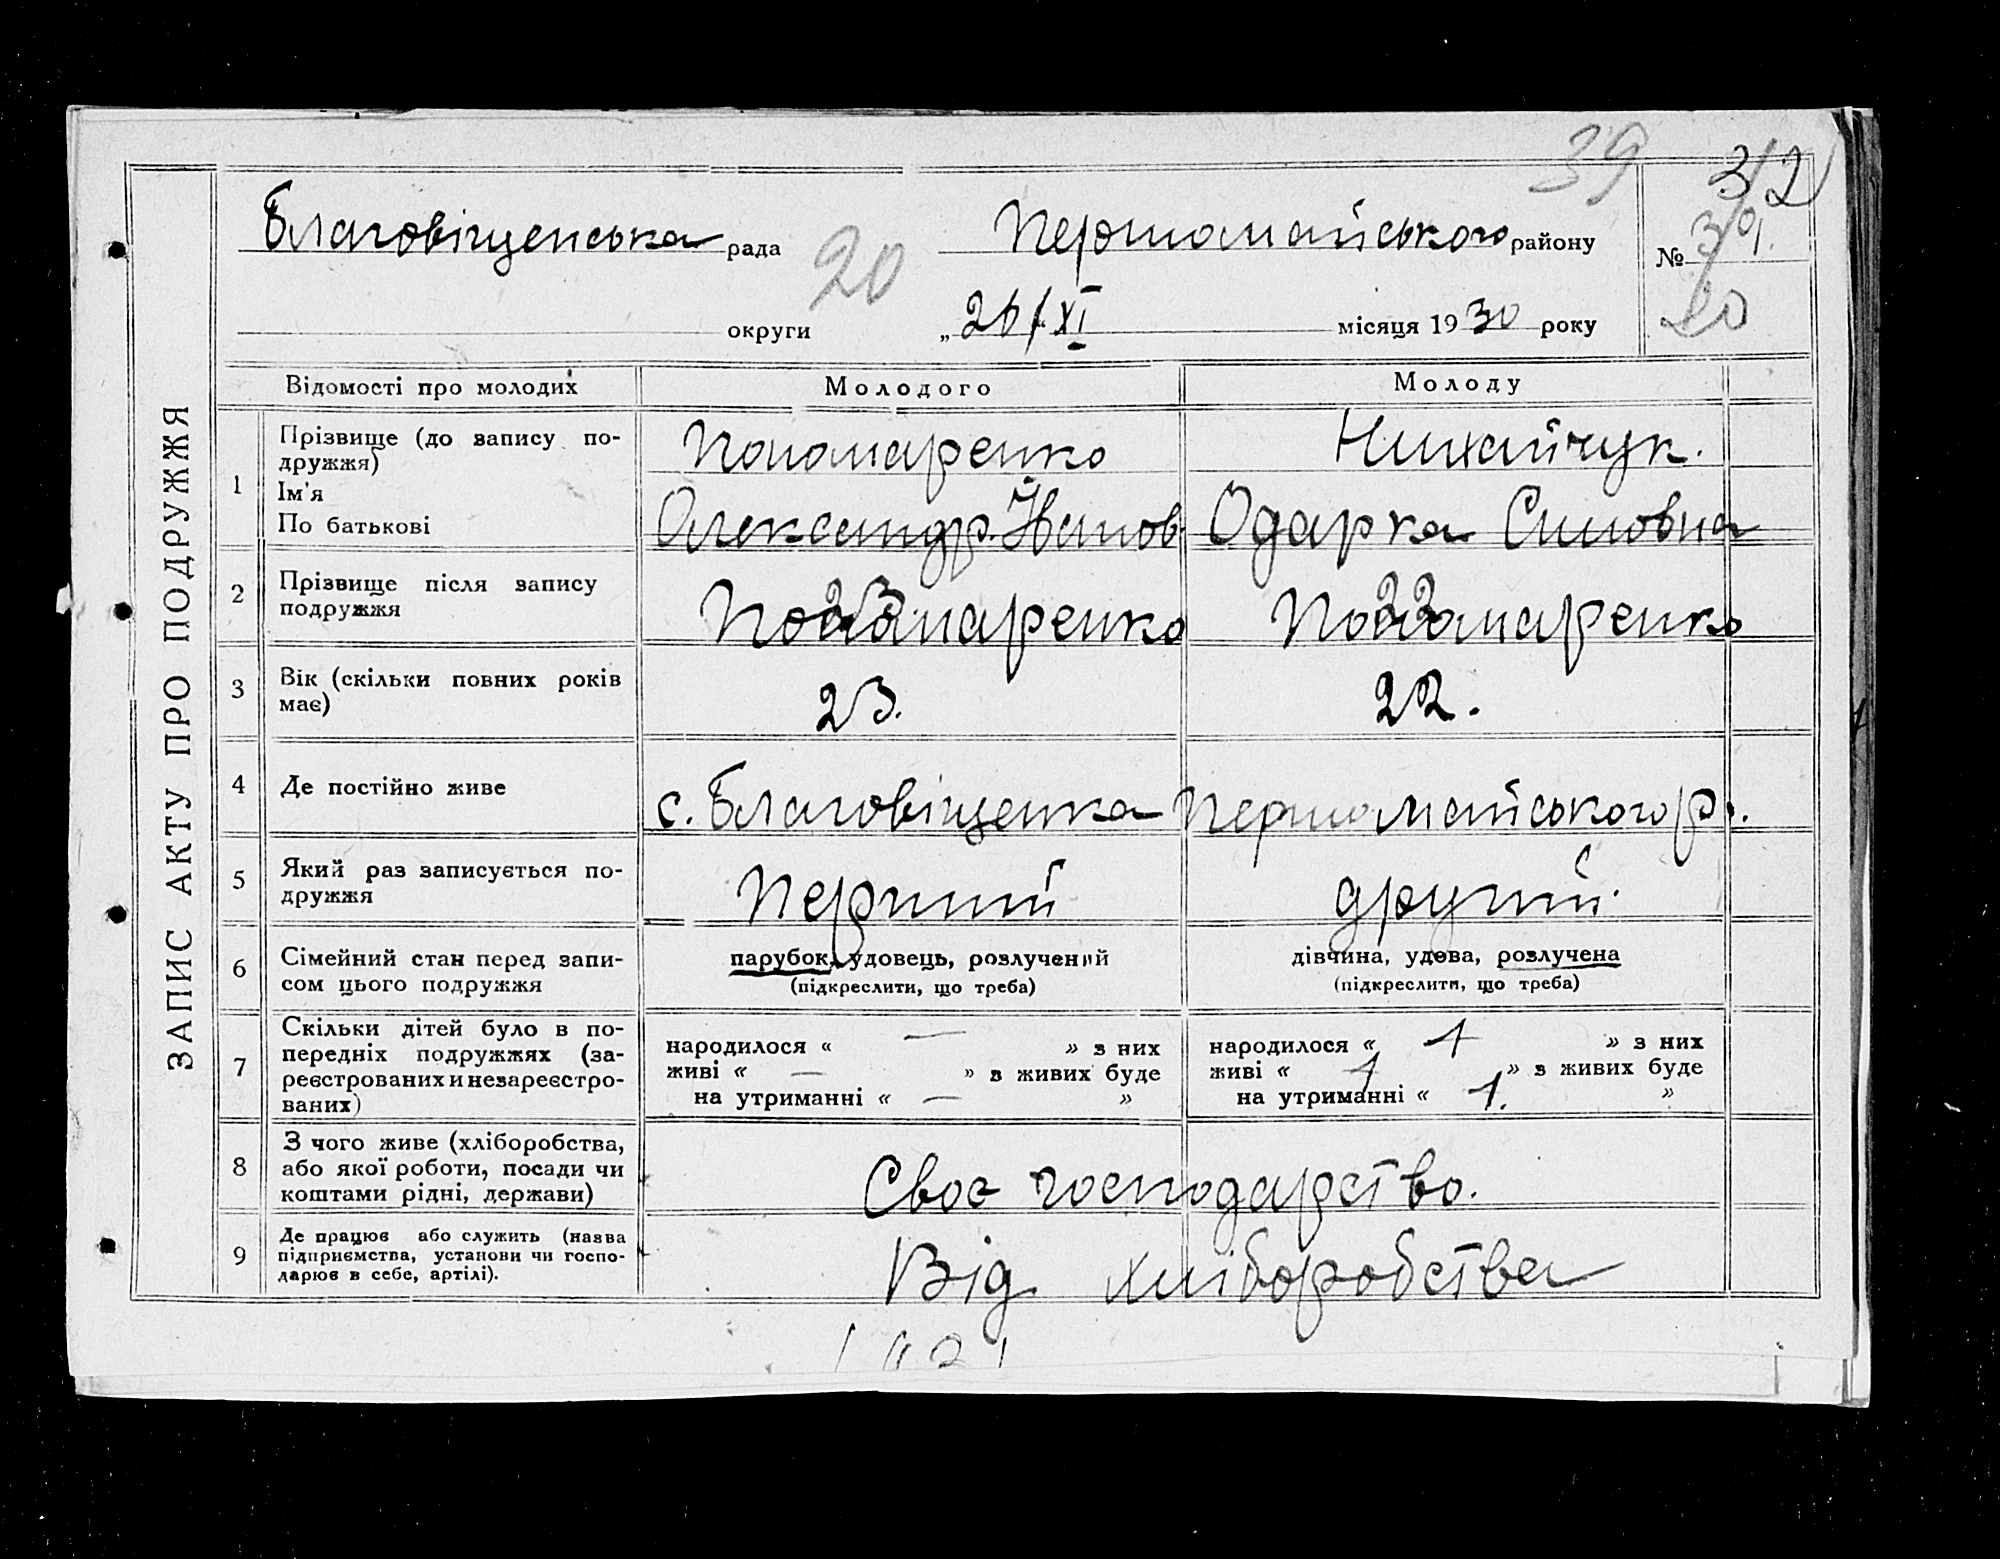 39
312
Благовіщенська рада 20 Першомайського району № 301.
округи „26/XI місяця 1930 року 20
ЗАПИС АКТУ ПРО ПОДРУЖЖЯ
Відомості про молодих Молодого Молоду
1 Прізвище (до запису по-
дружжя)
Ім'я
По батькові
Пономаренко
Олександр Іванов.
Одарка Силовна
2 Прізвище після запису
подружжя
Пономаренко Пономаренко
3 Вік (скільки повних років
має)
23. 22.
4 Де постійно живе с. Благовіщенка Першомайського р.
5 Який раз записується по-
дружжя
Перший другий.
6 Сімейний стан перед запи-
сом цього подружжя
парубок, удовець, розлучений
(підкреслити, що треба)
дівчина, удова, розлучена
(підкреслити, що треба)
7 Скільки дітей було в по-
передніх подружжях (за-
реєстрованих и незареєстро-
ваних)
народилося « — » з них
живі « — » з живих буде
на утриманні « — »
народилося « 1 » з них
живі « 1 » з живих буде
на утриманні « 1. »
8 З чого живе (хліборобства,
або якої роботи, посади чи
коштами рідні, держави)
Своє господарство.
9 Де працює або служить (назва
підприємства, установи чи госпо-
дарює в себе, артілі).
Від хліборобства